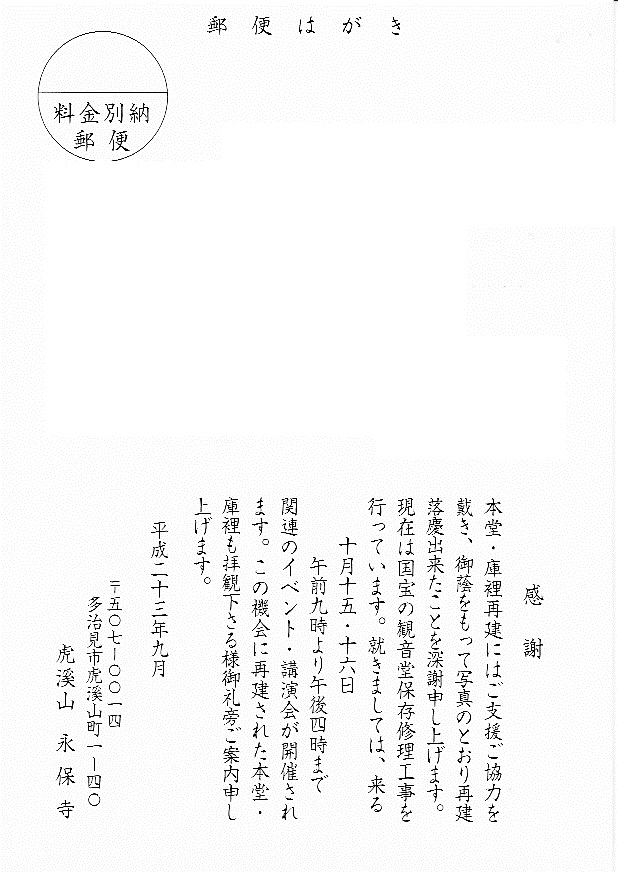 郵便はがき
料金別納
郵便
感謝
本堂・庫裡再建にはご支援ご協力を
戴き、御蔭をもって写真のとおり再建
落慶出来たことを深謝申し上げます。
現在は国宝の観音堂保存修理工事を
行っています。就きましては、来る
十月十五・十六日
午前九時より午後四時まで
関連のイベント・講演会が開催され
ます。この機会に再建された本堂・
庫裡も拝観下さる様御礼旁ご案内申し
上げます。
平成二十三年九月
〒五〇七ー〇〇一四
多治見市虎溪山町一ー四〇
虎溪山 永保寺